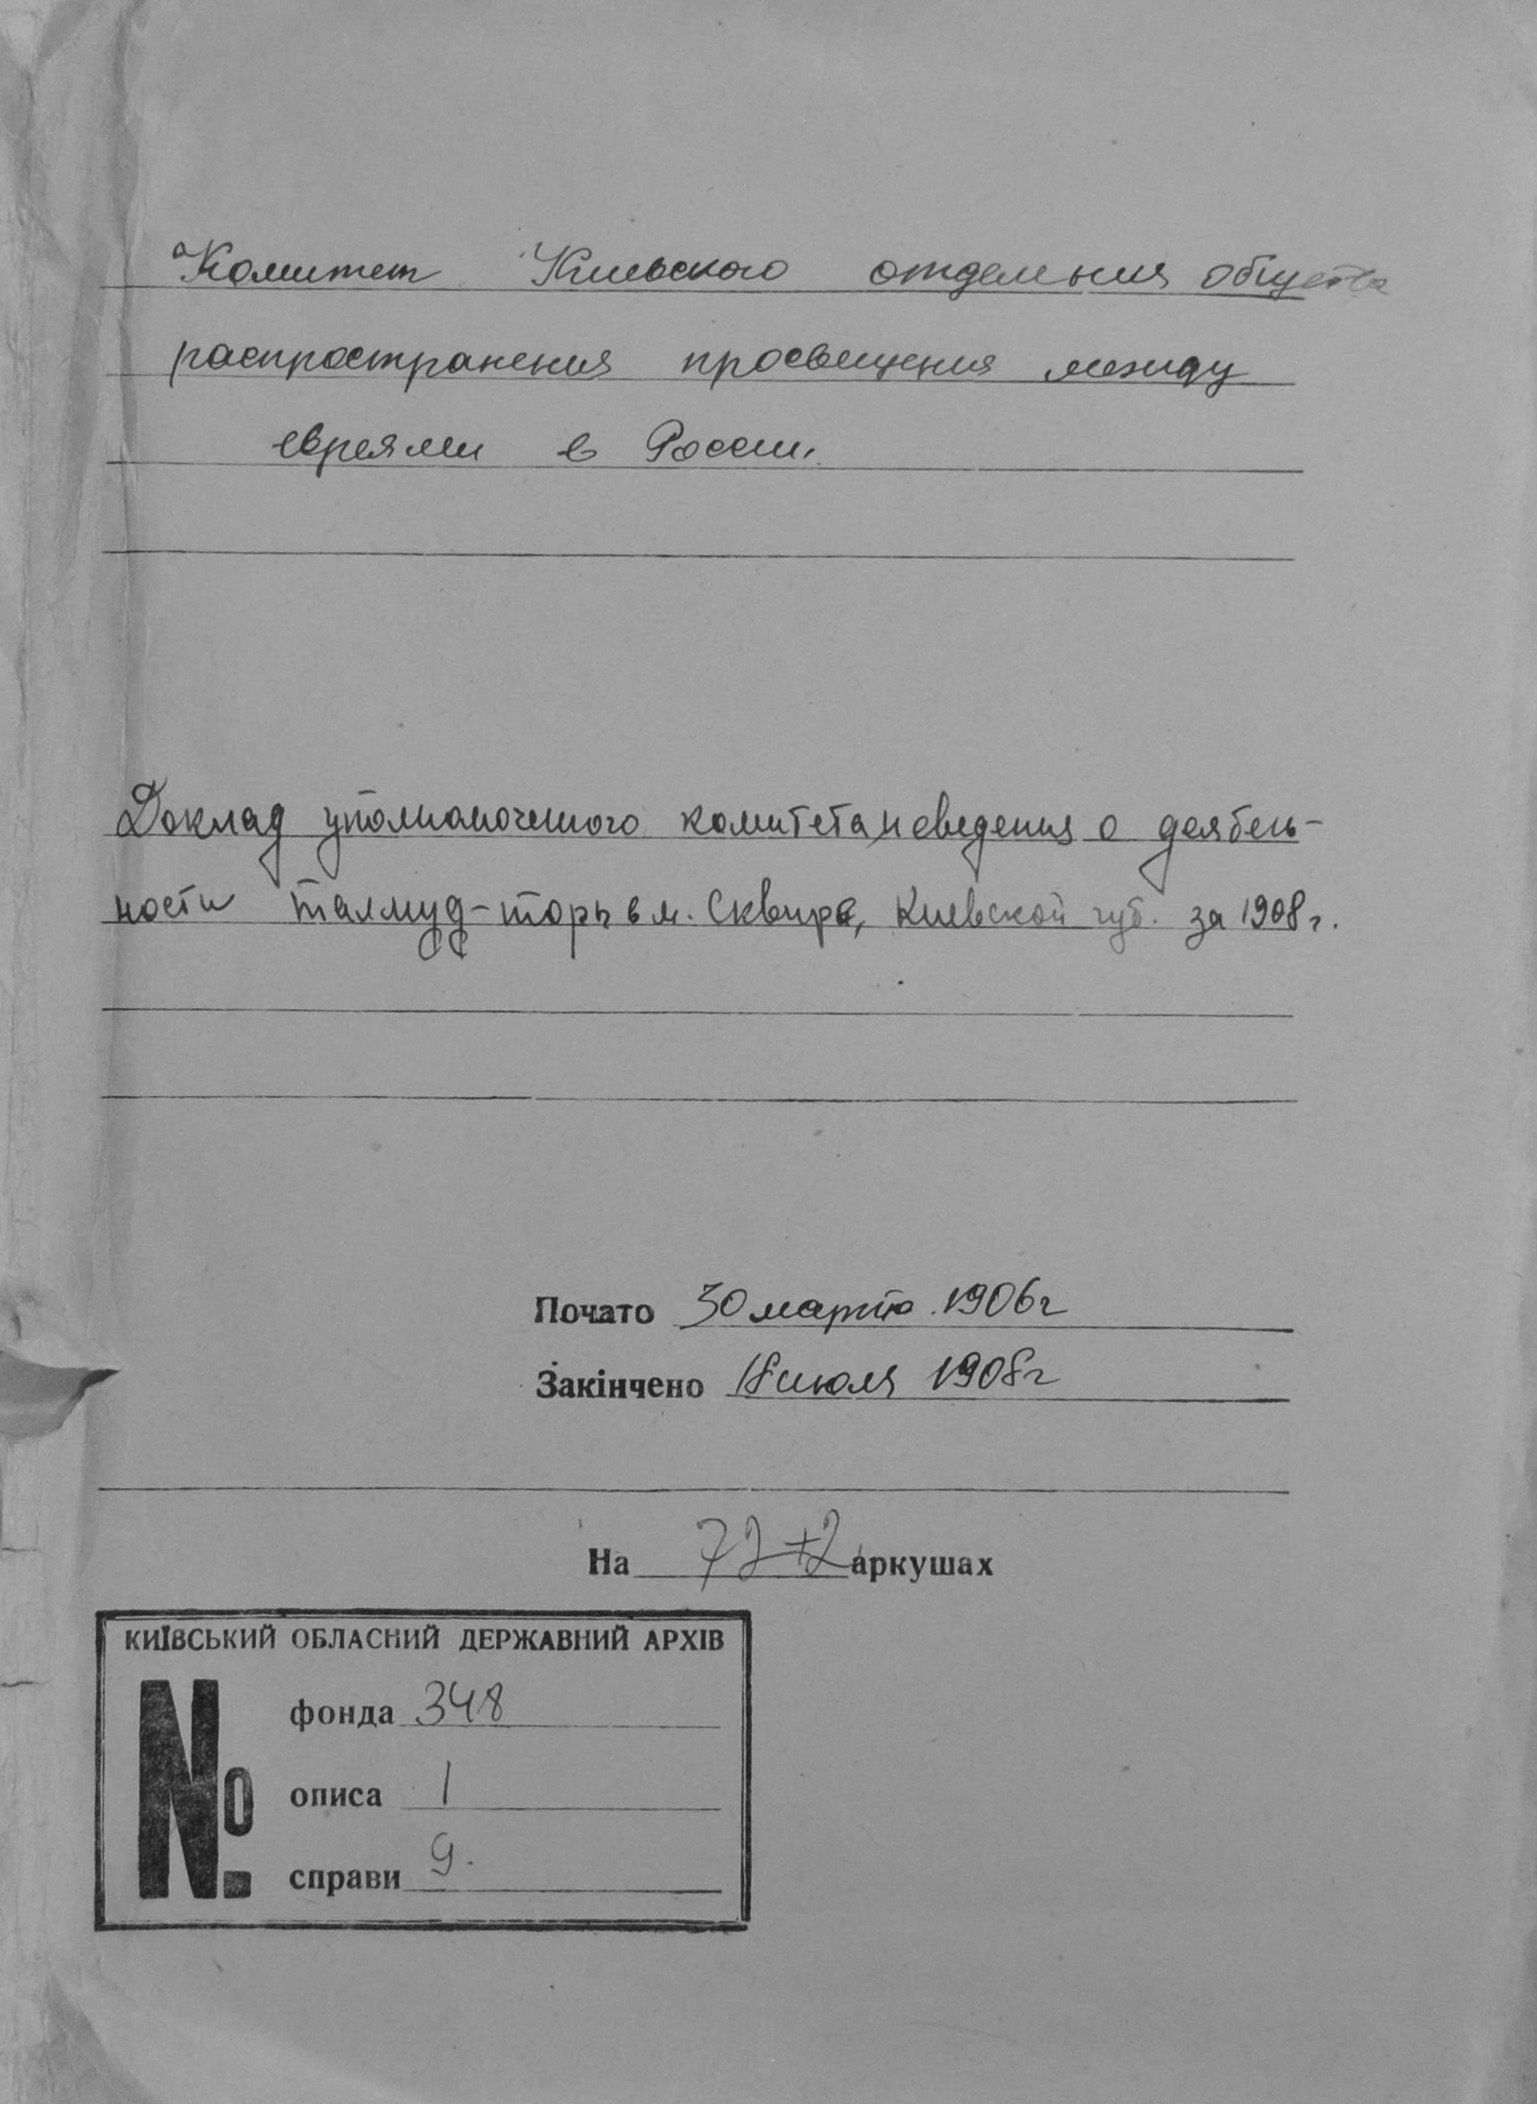 Комитет Киевского отделения общества
распространения просвещения между
евреями в России.
Доклад уполномоченного комитета и сведения о деятель-
ности талмуд-торы в м. Сквире, Киевской губ. за 1908 г.
Почато 30 марта 1906г
Закінчено 18 июля 1908г
На 72+2 аркушах
КИЇВСЬКИЙ ОБЛАСНИЙ ДЕРЖАВНИЙ АРХІВ
№
фонда 348
описа 1
справи 9.